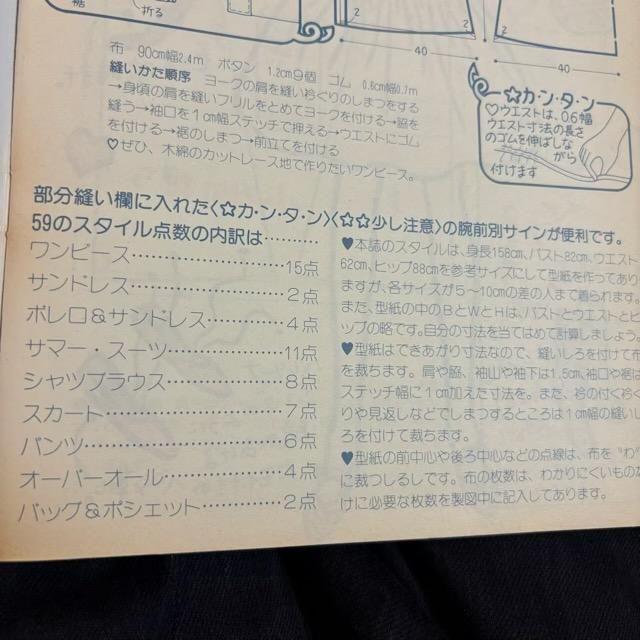 裾
折る
2
2
2
40
40
布 90cm幅2.4m ボタン 1.2cm9個 ゴム 0.6cm幅0.7m
縫いかた順序 ヨークの肩を縫い衿ぐりのしまつをする
→身頃の肩を縫いフリルをとめてヨークを付ける→脇を
縫う→袖口を1cm幅ステッチで押える→ウエストにゴム
を付ける→裾のしまつ→前立てを付ける
♡ぜひ、木綿のカットレース地で作りたいワンピース。
☆カ・ン・タ・ン
♡ウエストは、0.6幅
ウエスト寸法の長さ
のゴムを伸ばしな
がら
付けます
部分縫い欄に入れた〈☆カ・ン・タ・ン〉〈☆☆少し注意〉の腕前別サインが便利です。
59のスタイル点数の内訳は……
ワンピース……15点
サンドレス……2点
ボレロ&サンドレス……4点
サマー・スーツ……11点
シャツブラウス……8点
スカート……7点
パンツ……6点
オーバーオール……4点
バッグ&ポシェット……2点
♥本誌のスタイルは、身長158cm、バスト82cm、ウエスト
62cm、ヒップ88cmを参考サイズにして型紙を作ってあり
ますが、各サイズが5〜10cmの差の人まで着られます。
また、型紙の中のBとWとHは、バストとウエストとヒ
ップの略です。自分の寸法を当てはめて計算しましょう。
♥型紙はできあがり寸法なので、縫いしろを付けて布
を裁ちます。肩や脇、袖山や袖下は1.5cm、袖口や裾は
ステッチ幅に1cm加えた寸法を。また、衿の付くく
りや見返しなどでしまつするところは1cm幅の縫いし
ろを付けて裁ちます。
♥型紙の前中心や後ろ中心などの点線は、布を"わ"
に裁つしるしです。布の枚数は、わかりにくいものだ
けに必要な枚数を製図中に記入してあります。